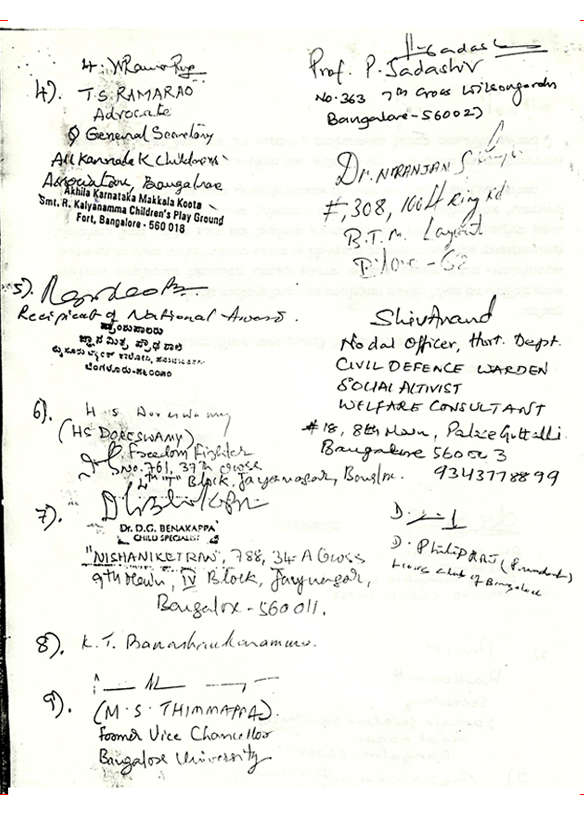 4).
T.S. RAMARAO
Advocate
General Secretary
All Karnataka Childrens
Association, Bangalore
Akhila Karnataka Makkala Koota
Smt. R. Kalyanamma Children's Play Ground
Fort, Bangalore - 560 018
5).
Recipient of National Award.
6).
(HS DORESWAMY)
Freedom Fighter
No. 761, 37th Cross
4th "T" Block, Jayanagar,
7).
Dr. D.G. BENAKAPPA
CHILD SPECIALIST
"NISHANIKETAN", 788, 34 A Cross
9th Main, IV Block, Jaynagar,
Bangalore - 560011.
8). K.T.
9).
(M.S. THIMMAPPA).
Former Vice Chancellor
Bangalore University
Prof. P. Sadashiv
No. 363 7th Cross Wilsongarden
Bangalore - 560027
Dr. NIRANJAN
#, 308, Ring Rd
B.T.M Layout
Shivanand
Nodal Officer, Hort. Dept.
CIVIL DEFENCE WARDEN
SOCIAL ACTIVIST
WELFARE CONSULTANT
#18, 8th Main, Palace Guttalli
Bangalore 560003
9343778899
D.
D. PHILIPRAJ (President)
Bangalore